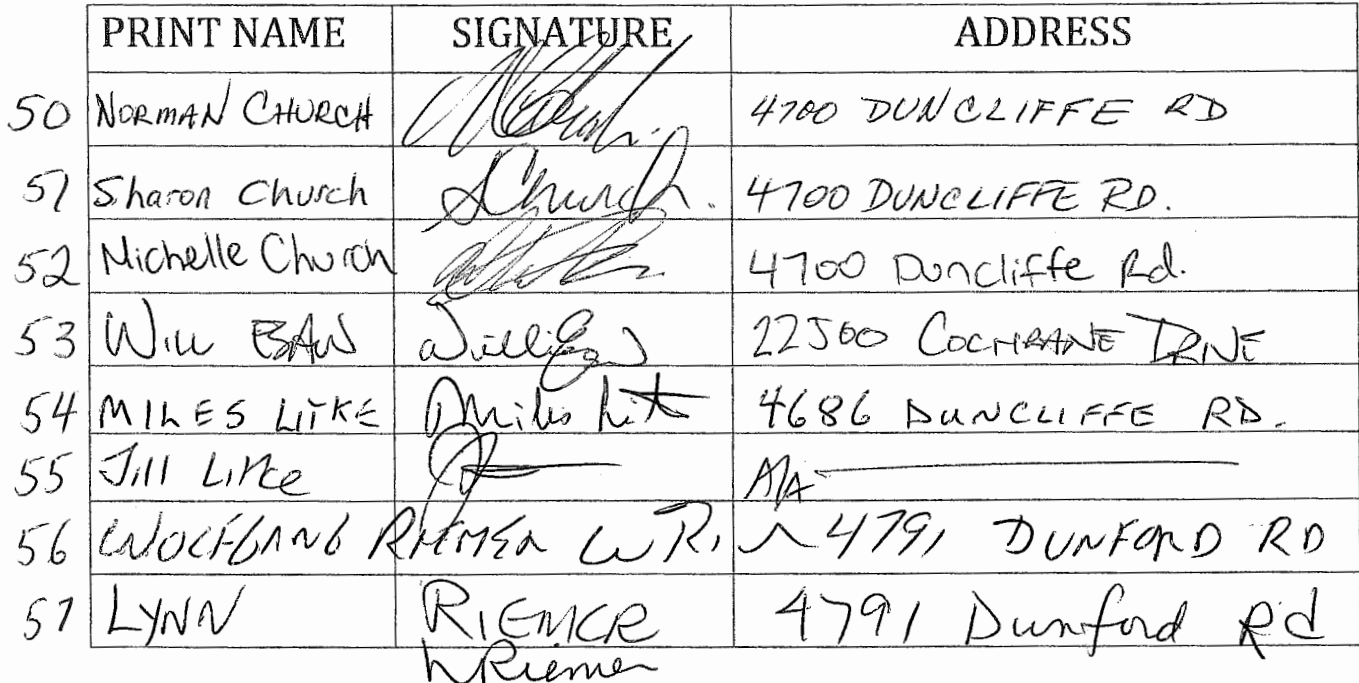 PRINT NAME SIGNATURE ADDRESS
50 NORMAN CHURCH 4700 DUNCLIFFE RD
51 Sharon Church SChurch. 4700 DUNCLIFFE RD.
52 Michelle Church 4700 Duncliffe Rd.
53 Will 22500 COCHRANE DRIVE
54 MILES LITKE Miles Lit 4686 DUNCLIFFE RD.
55 Jill Litke
56 WOLFGANG RIEMER W Ri 4791 DUNFORD RD
57 LYNN RIEMER 4791 Dunford Rd
LRiemer